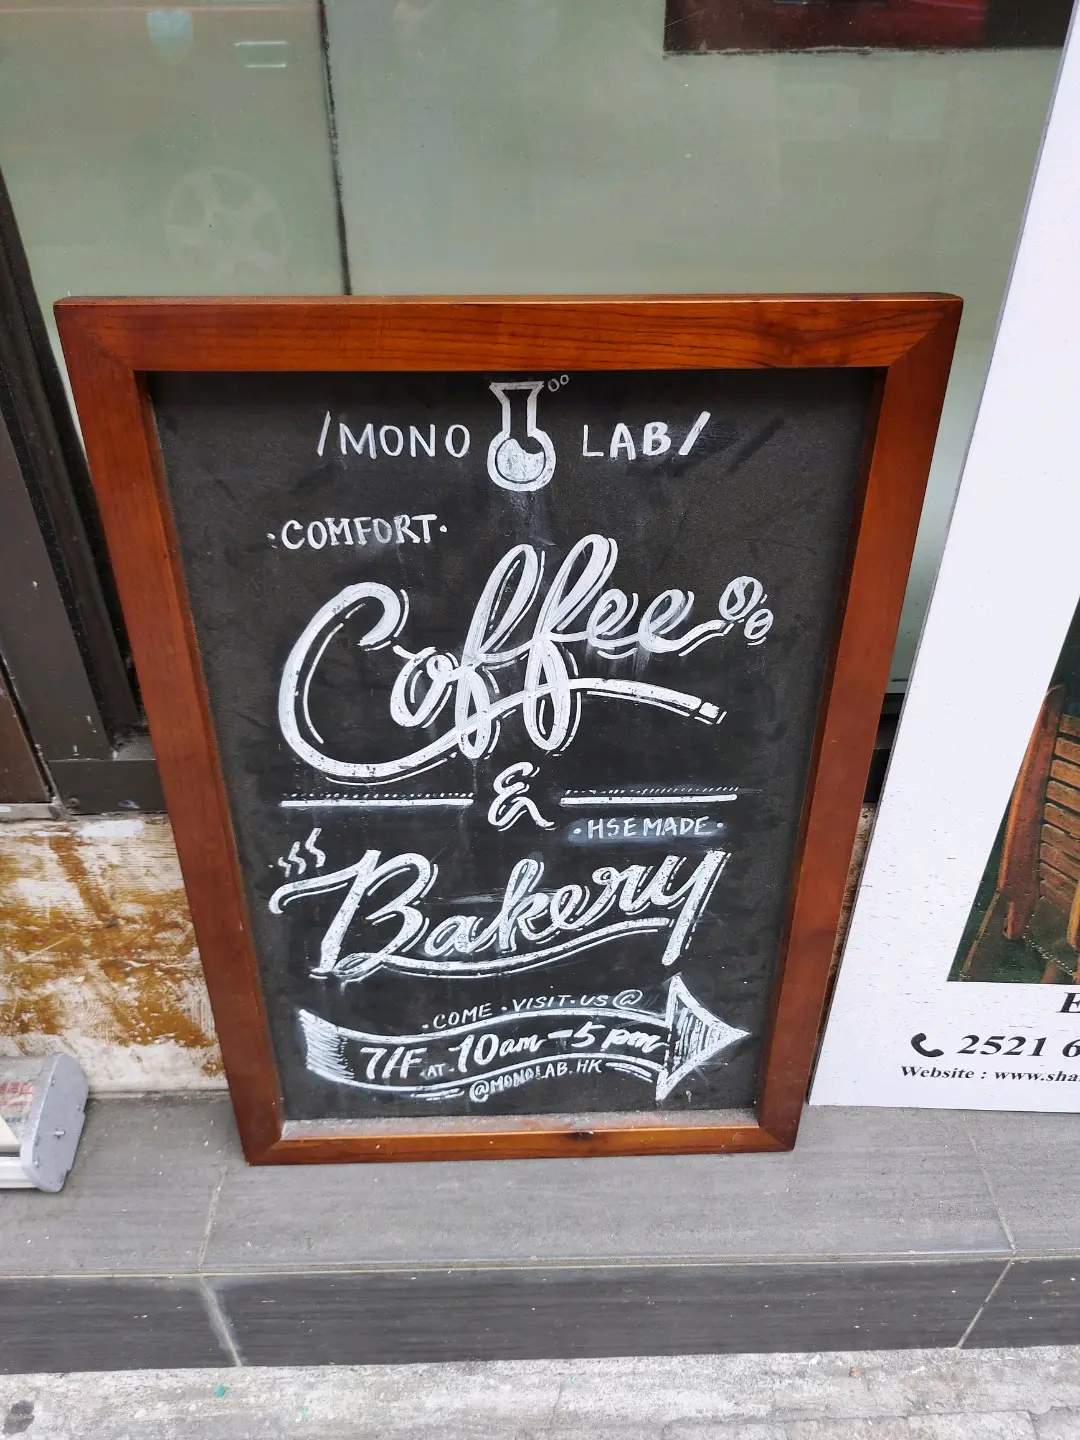 /MONO LAB/
·COMFORT·
Coffee
&
·HSEMADE·
Bakery
·COME·VISIT·US@
7/F AT 10am-5pm
@MONOLAB.HK
2521 6
Website : www.sha